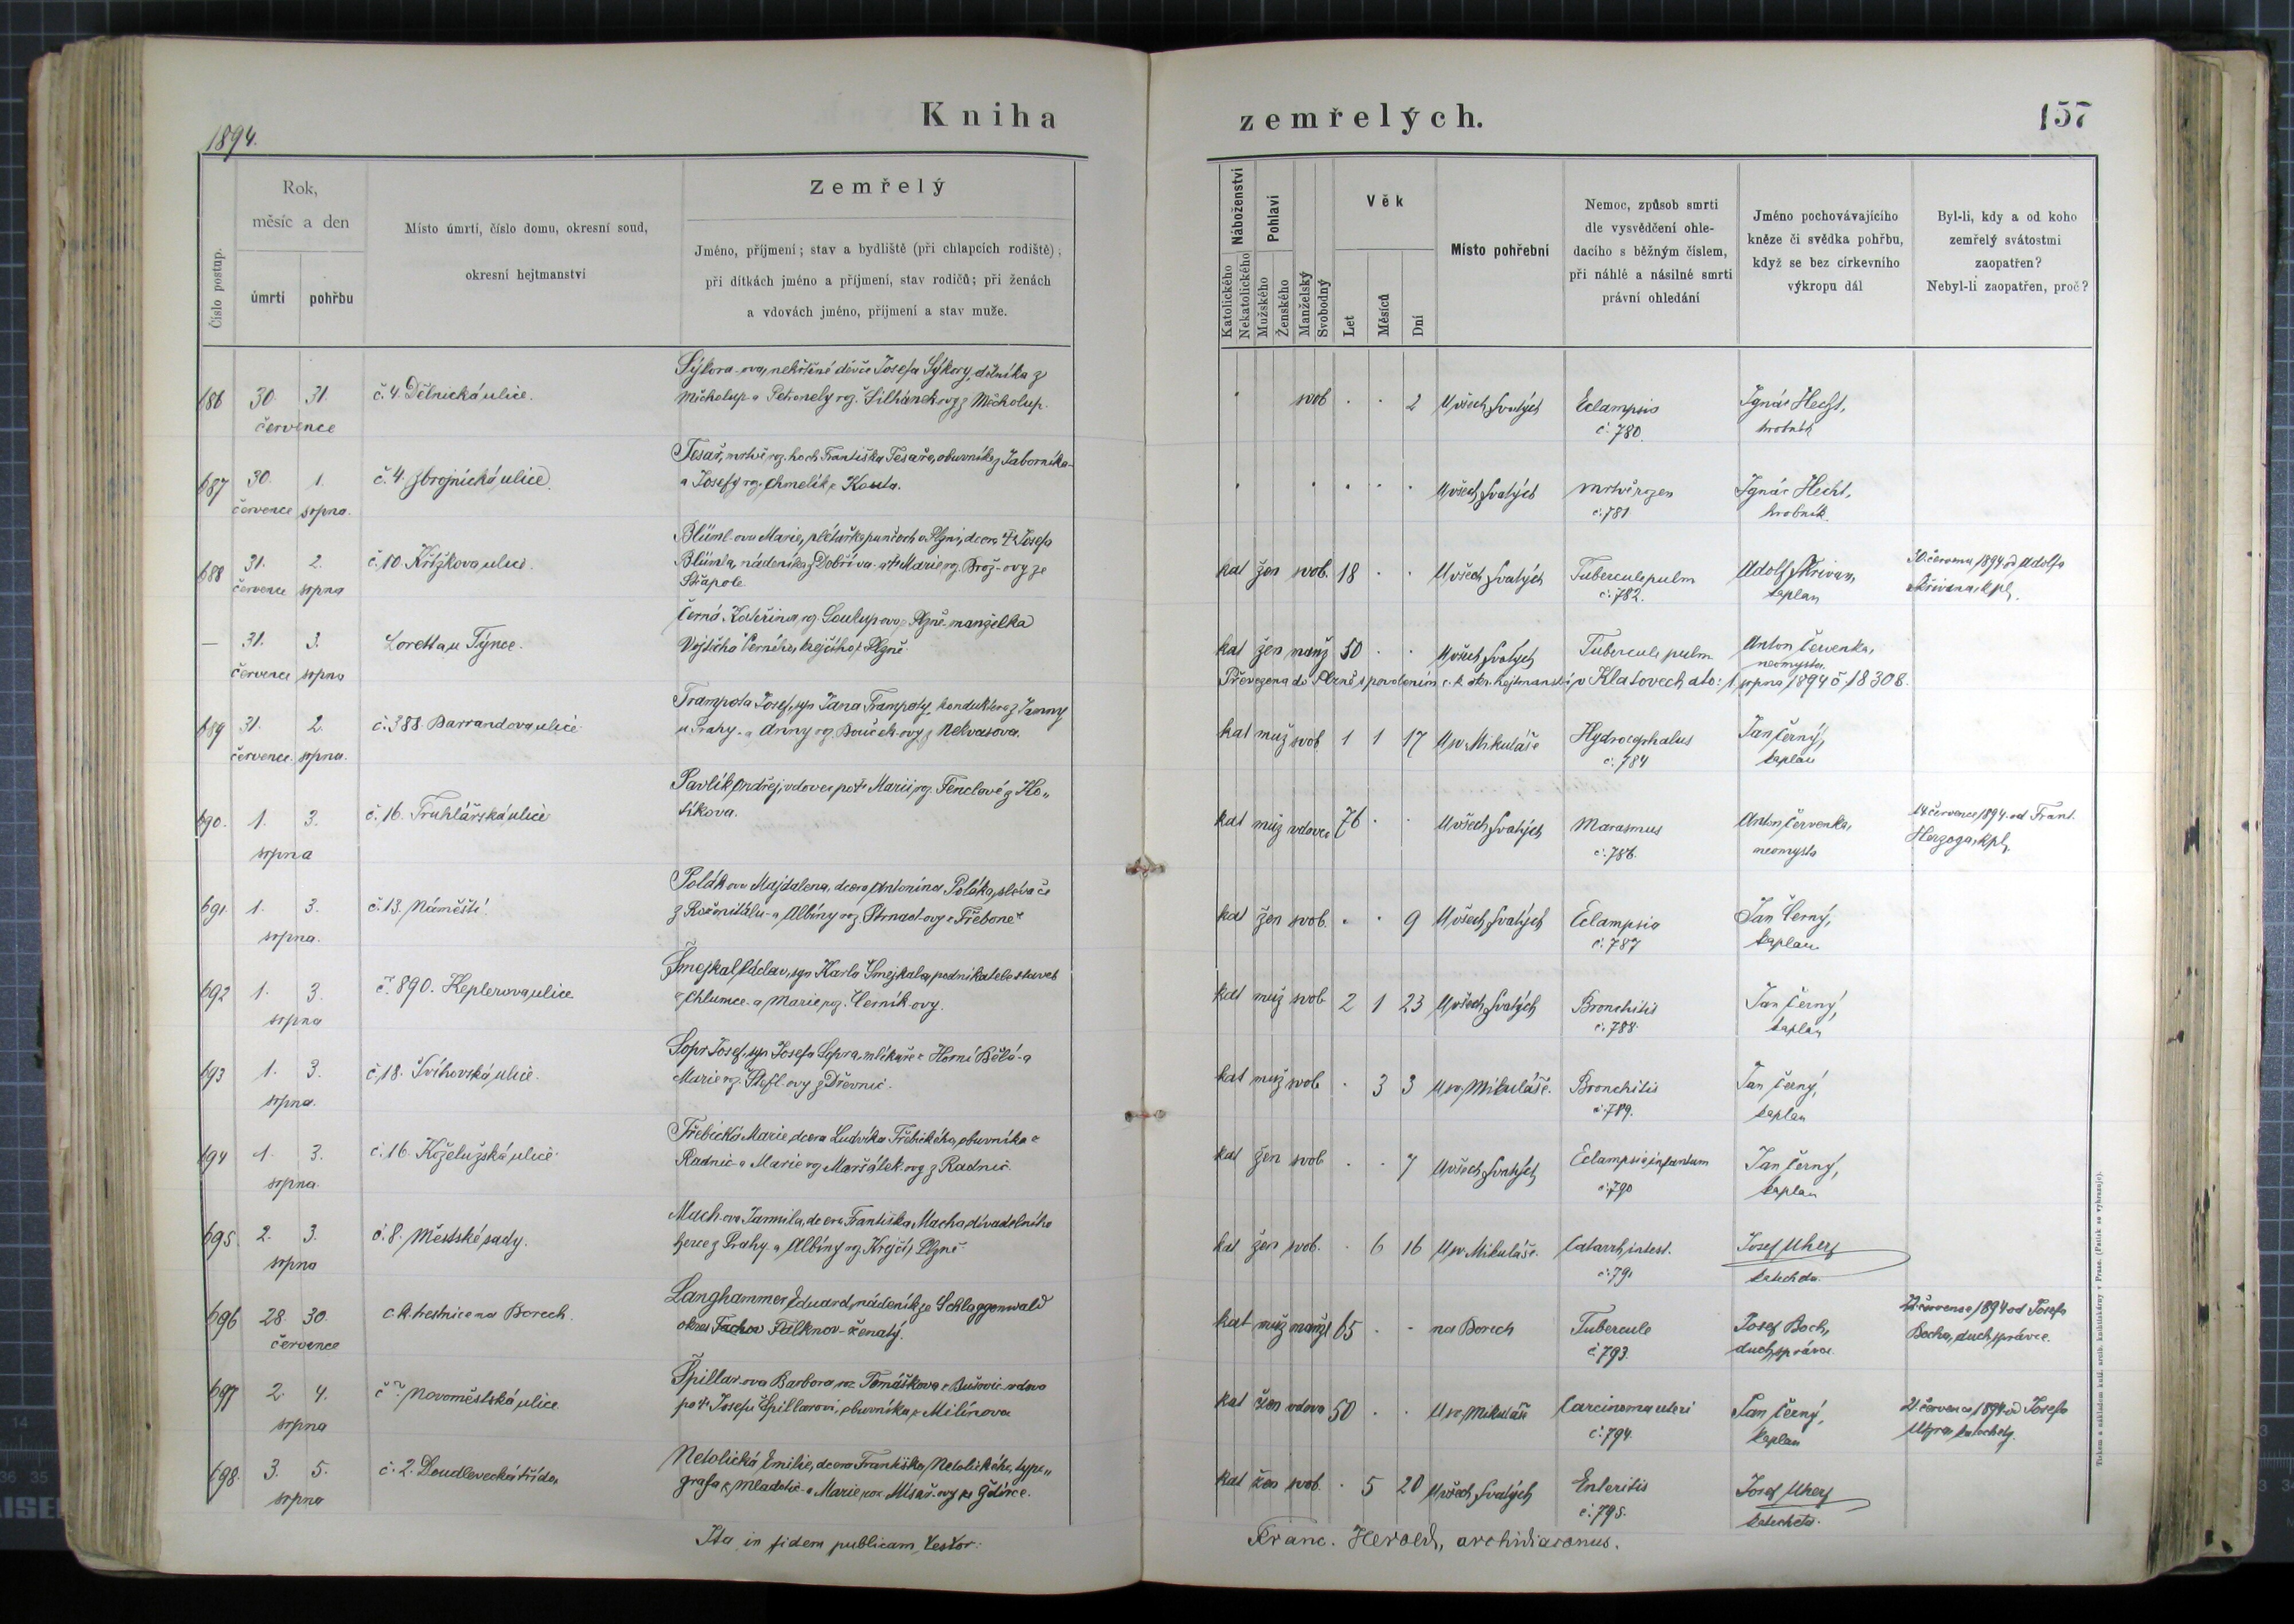 1894.
Kniha
zemřelých.
157
Číslo postup.
Rok,
měsíc a den
úmrtí
pohřbu
Místo úmrtí, číslo domu, okresní soud,
okresní hejtmanství
Zemřelý
Jméno, příjmení; stav a bydliště (při chlapcích rodiště);
při dítkách jméno a příjmení, stav rodičů; při ženách
a vdovách jméno, příjmení a stav muže.
Náboženství
Katolického
Nekatolického
Pohlaví
Mužského
Ženského
Manželský
Svobodný
Věk
Let
Měsíců
Dní
Místo pohřební
Nemoc, způsob smrti
dle vysvědčení ohle-
dacího s běžným číslem,
při náhlé a násilné smrti
právní ohledání
Jméno pochovávajícího
kněze či svědka pohřbu,
když se bez církevního
výkropu dál
Byl-li, kdy a od koho
zemřelý svátostmi
zaopatřen?
Nebyl-li zaopatřen, proč?
686 30. 31. července
č. 4. Dělnická ulice.
Sýkora-ova, nekřtěné děvče Josefa Sýkory, dělníka z
Měcholup a Petronely roz. Silhánek-ovy z Měcholup.
svob . . 2 U všech svatých Eclampsis č. 780. Ignác Hecht, hrobník
687 30. července 1. srpna.
č. 4. Zbrojnická ulice.
Tesař, mrtvě roz. hoch Františka Tesaře, obuvníka z Táborníka
a Josefy roz. Chmelík z Kouta.
U všech svatých mrtvě rozen č. 781 Ignác Hecht, hrobník.
688 31. července 2. srpna
č. 10 Křížkova ulice.
Blüml-ova Marie, pletařka punčoch v Plzni, dcera † Josefa
Blümla, nádeníka z Dobříva a † Marie roz. Brož-ovy ze
Šťáhlav
kat žen svob. 18 . . U všech svatých Tubercule pulm č. 782. Adolf Křivan, kaplan
30. června 1894 od Adolfa
Křivana kpl.
— 31. července 3. srpna
Loretta u Týnce.
Černá Kateřina roz. Soukup-ova z Plzně manželka
Vojtěcha Černého, krejčího z Plzně.
kat žen manž 50 . . U všech svatých Tubercule pulm Anton Červenka, neomysta.
Převezena do Plzně s povolením c. k. okr. hejtmanství v Klatovech dto: 1. srpna 1894 č 18308.
689 31. července. 2. srpna.
č. 388. Barrandova ulice
Trampota Josef, syn Jana Trampoty, konduktera z Jenny
u Prahy a Anny roz. Bouček-ovy z Nekvasova.
kat muž svob. 1 1 17 U sv. Mikuláše Hydrocephalus č. 784 Jan Černý, kaplan
690. 1. 3. srpna
č. 16. Truhlářská ulice
Pavlík Ondřej, vdovec po † Marii roz. Fenclové z Ho„
líkova.
kat muž vdovec 76 . . U všech svatých Marasmus č. 786. Anton Červenka, neomysta
14 července 1894 od Frant.
Herzoga, kpl.
691. 1. 3. srpna.
č. 13. Náměstí.
Polák-ova Majdalena, dcera Antonína Poláka, slévače
z Rožmitálu a Albíny roz. Strnad-ovy z Třeboně
kat žen svob. . . 9 U všech svatých Eclampsia č. 787 Jan Černý, kaplan
692 1. 3. srpna
č. 890. Keplerova ulice
Šmejkal Václav, syn Karla Šmejkala, podnikatele staveb
z Chlumce a Marie roz. Černík-ovy.
kat muž svob 2 1 23 U všech svatých Bronchitis č. 788. Jan Černý, kaplan
693 1. 3. srpna.
č. 18. Švihovská ulice.
Sopr Josef, syn Josefa Sopra, mlékaře z Horní Bělé a
Marie roz. Štefl-ovy z Dřevnic.
kat muž svob . 3 3 U sv. Mikuláše. Bronchitis č. 789. Jan Černý, kaplan
694 1. 3. srpna.
č. 16. Koželužská ulice
Třebická Marie, dcera Ludvíka Třebického, obuvníka z
Radnic a Marie roz. Maršálek-ovy z Radnic.
kat žen svob . . 7 U všech svatých Eclampsia infantum č. 790 Jan Černý, kaplan
695. 2. 3. srpna
č. 8. Městské sady.
Mach-ova Jarmila, dcera Františka Macha, divadelního
herce z Prahy a Albíny roz. Krejčí z Plzně
kat žen svob. . 6 16 U sv. Mikuláše. Catarrh. intest. č. 791 Josef Uher katecheta.
696 28. 30. července
c. k. trestnice na Borech.
Langhammer Eduard, nádeník ze Schlaggenwald
okres Tachov Falknov - ženatý.
kat muž manžel 65 . . na Borech Tubercule č. 793. Josef Boch, duch. správce.
22. července 1894 od Josefa
Bocha, duch. správce.
697 2. 4. srpna
č. 7. Novoměstská ulice
Špillar-ova Barbora roz. Tomáškova z Bušovic vdova
po † Josefu Špillarovi, obuvníku z Milínova
kat žen vdova 50 . . U sv. Mikuláše Carcinoma uteri č. 794. Jan Černý, kaplan
21 července 1894 od Josefa
Uhra katechety.
698. 3. 5. srpna
č. 2. Doudlevecká třída.
Netolická Emilie, dcera Františka Netolického, typo„
grafa z Mladotic a Marie roz. Misař-ovy ze Ždírce.
kat žen svob. . 5 20 U všech svatých Enteritis č. 795. Josef Uher katecheta.
Ita in fidem publicam testor:
Franc. Herold, archidiaconus.